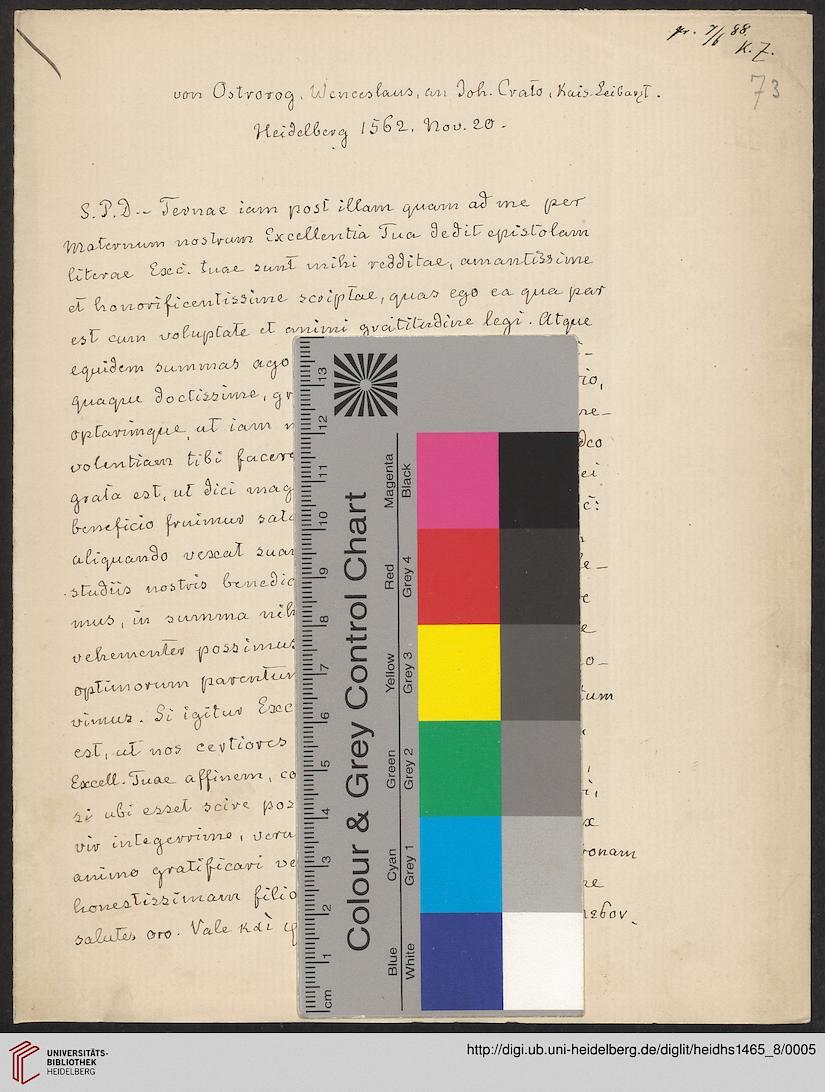 pr. 7/6 88.
K. Z.
73
von Ostrorog, Wenceslaus, an Joh. Crato, Kais. Leibarzt.
Heidelberg 1562. Nov. 20.
S. P. D. - Ternae iam post illam quam ad me per
Maternum nostrum Excellentia Tua dedit epistolam
literae Exc. tuae sunt mihi redditae, amantissime
et honorificentissime scriptae, quas ego ea qua par
est cum voluptate et animi gratitudine legi. Atque
equidem summas ago
quaque doctissime, gr io,
optavimque, ut iam ne-
volentiam tibi facere dco
grata est, ut dici mag ei
beneficio fruimur c:
aliquando vexat suam
studiis nostris benedic e-
mus, in summa nih e
vehementer possimus e
optimorum parentum o-
vimus. Si igitur Exc tum
est, ut nos certiores
Excell. Tuae affinem, co
si ubi esset scire pos i,
vir integerrime, veru x
animo gratificari ve onam
honestissimam filio ne
salutes oro. Vale καὶ
13
12
11
10
9
8
7
6
5
4
3
2
1
cm
Colour & Grey Control Chart
Blue Cyan Green Yellow Red Magenta
White Grey 1 Grey 2 Grey 3 Grey 4 Black
UNIVERSITÄTS-
BIBLIOTHEK
HEIDELBERG
http://digi.ub.uni-heidelberg.de/diglit/heidhs1465_8/0005